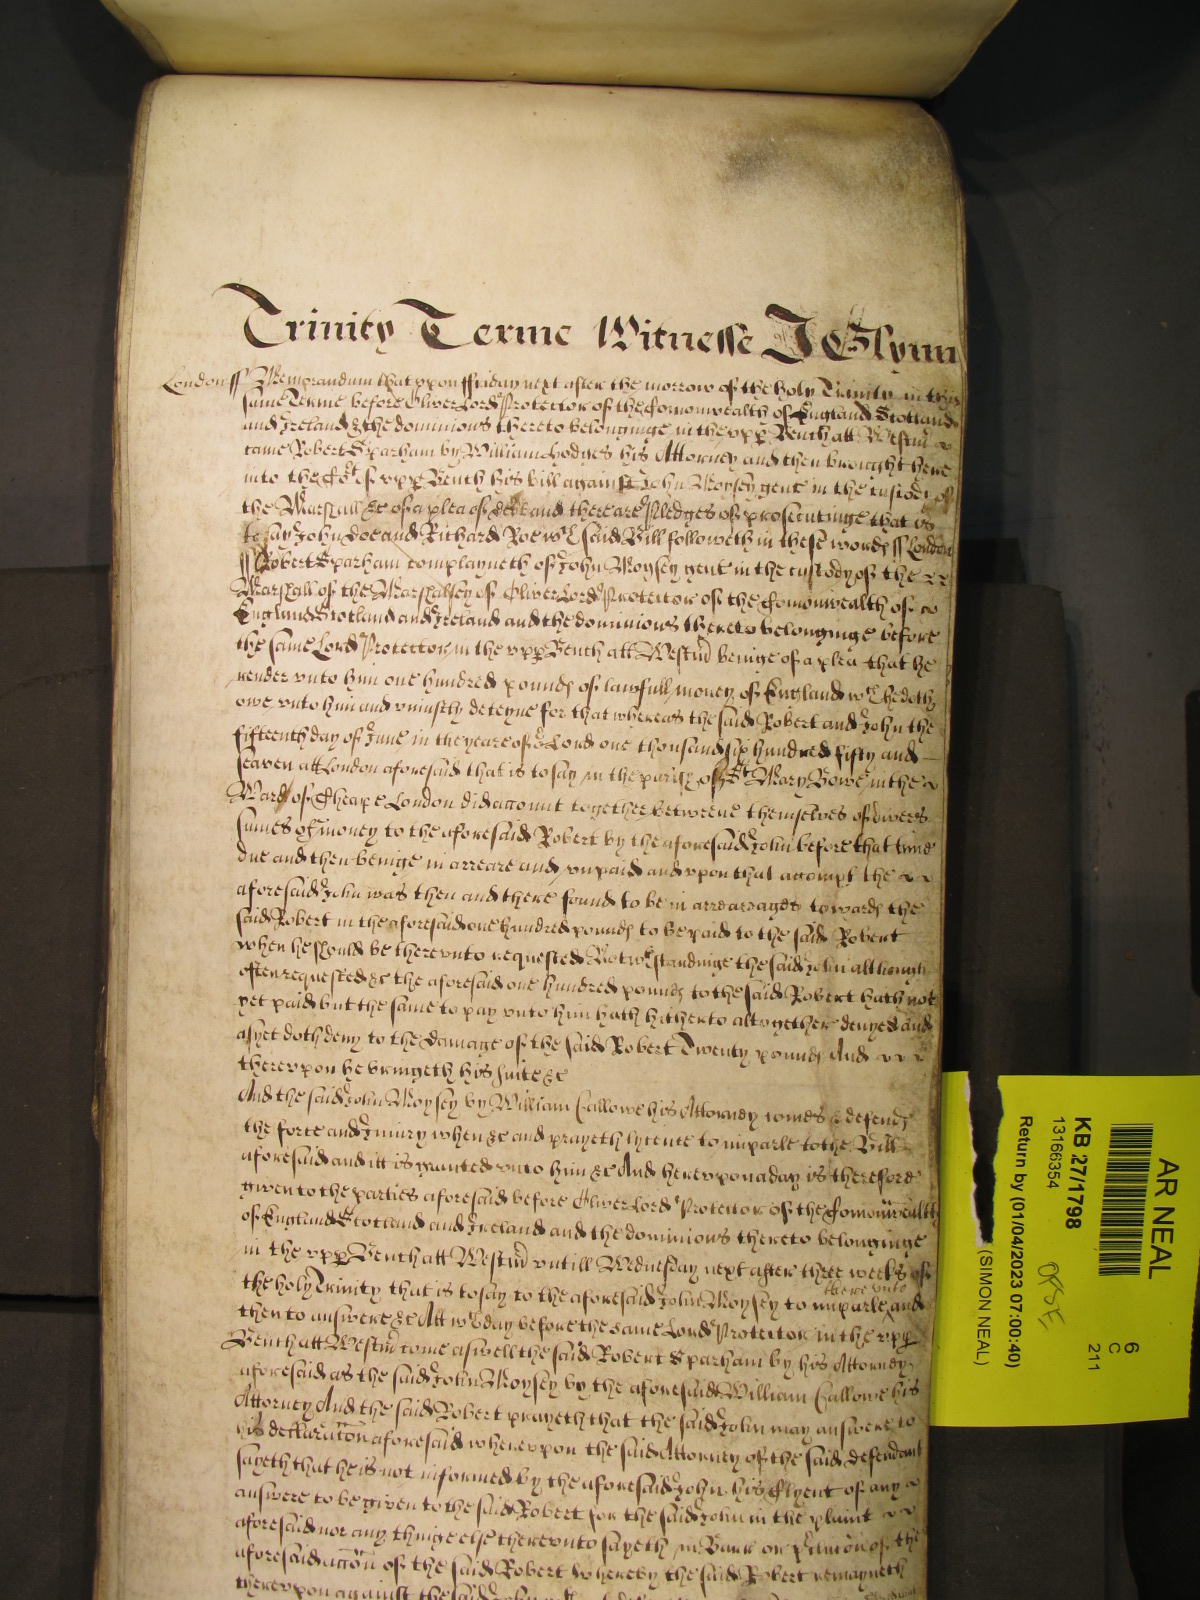 Trinity Terme Witnesse J Glynn
London ss Memorandum that vpon ffriday next after the morrow of the holy Trinity in this
same Terme before Oliver Lord Protector of the Comonwealth of England Scotland
and Ireland & the dominions thereto belonginge in the vpp Bench att Westm
came Robert Sparham by William Hodges his Attorney and then brought here
into the Cot of vpp Bench his bill against John Moysey gent in the custody of
the Marshall &c of a plea of debt and there are Pledges of prosecutinge that is
to say John Doe and Richard Roe wch said Bill followeth in these words ss London
ss Robert Sparham complayneth of John Moysey gent in the custody of the
Marshall of the Marshalsey of Oliver Lord Protector of the Comonwealth of
England Scotland and Ireland and the dominions thereto belonginge before
the same Lord Protector in the vpp Bench att Westm beinge of a plea that he
render vnto him one hundred pounds of lawfull money of England wch he doth
owe vnto him and vniustly deteyne for that whereas the said Robert and John the
fifteenth day of June in the yeare of or Lord one thousand six hundred fifty and
seaven att London aforesaid that is to say in the parish of St Mary Bowe in the
Ward of Cheape London did account together betweene themselves of divers
sumes of money to the aforesaid Robert by the aforesaid John before that time
due and then beinge in arreare and vnpaid and vpon that accompt the
aforesaid John was then and there found to be in arrearages towards the
said Robert in the aforesaid one hundred pounds to be paid to the said Robert
when he should be therevnto requested Notwthstandinge the said John although
often requested &c the aforesaid one hundred pounds to the said Robert hath not
yet paid but the same to pay vnto him hath hitherto altogether denyed and
as yet doth deny to the damage of the said Robert Twenty pounds And
therevpon he bringeth his suite &c
And the said John Moysey by William Callowe his Attorney comes & defends
the force and Iniury when &c and prayeth lycence to imparle to the Bill
aforesaid and itt is granted vnto him &c And herevpon a day is therefore
given to the parties aforesaid before Oliver Lord Protector of the Comonwealth
of England Scotland and Ireland and the dominions thereto belonginge
in the vpp Bench att Westm vntill Wednesday next after three weeks of
the holy Trinity that is to say to the aforesaid John Moysey to imparle therevnto and
then to answere &c Att wch day before the same Lord Protector in the vpp
Bench att Westm come aswell the said Robert Sparham by his Attorney
aforesaid as the said John Moysey by the aforesaid William Callowe his
Attorney And the said Robert prayeth that the said John may answere to
his declaracon aforesaid wherevpon the said Attorney of the said defendant
sayeth that he is not informed by the aforesaid John his Clyent of any
answere to be given to the said Robert for the said John in the plaint
aforesaid nor any thinge else therevnto sayeth in Barr or of the
aforesaid accon of the said Robert whereby the said Robert remayneth
therevpon against the said John
AR NEAL
KB 27/1798
13166354
Return by (01/04/2023 07:00:40)
(SIMON NEAL)
6
C
211